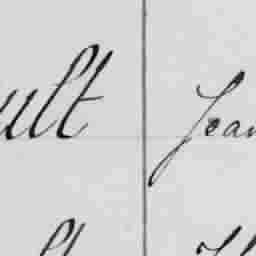 ult Jean